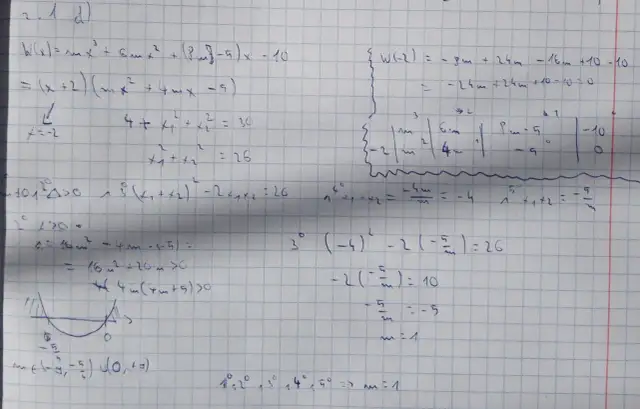 z. 1 d)
W(x) = mx³ + 6mx² + (8m-5)x - 10
= (x+2)(mx² + 4mx - 5)
x = -2
4 + x₁² + x₂² = 30
x₁² + x₂² = 26
W(-2) = -8m + 24m - 16m + 10 - 10
= -24m + 24m + 10 - 10 = 0
| m | 6m | 8m-5 | -10
-2 | m | 4m | -5 | 0
1° Δ>0 ∧ 3° (x₁+x₂)² - 2x₁x₂ = 26 ∧ 4° x₁+x₂ = -4m/m = -4 ∧ 5° x₁x₂ = -5/m
2° Δ>0
Δ = 16m² - 4m·(-5) =
= 16m² + 20m > 0
4m(4m+5) > 0
-5/4 0
m ∈ (-∞, -5/4) ∪ (0, +∞)
3° (-4)² - 2(-5/m) = 26
-2(-5/m) = 10
-5/m = -5
m = 1
1°, 2°, 3°, 4°, 5° => m = 1